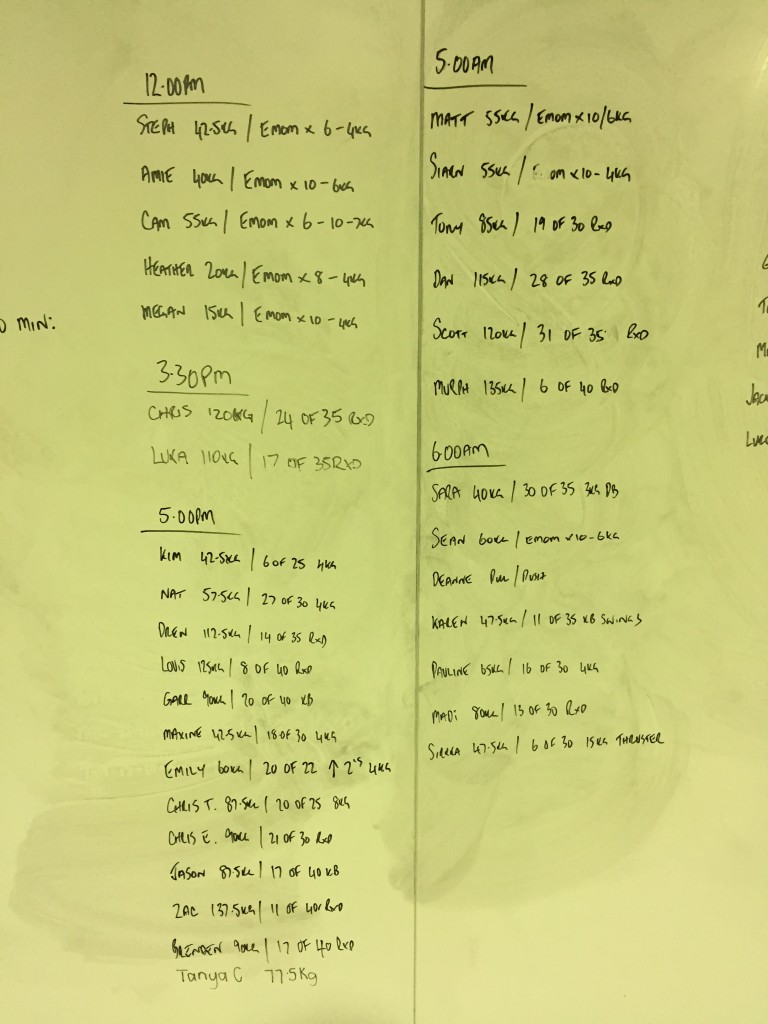 12.00PM
STEPH 42.5KG / EMOM x 6 - 4KG
AMIE 40KG / EMOM x 10 - 6KG
CAM 55KG / EMOM x 6 - 10 -
HEATHER 20KG / EMOM x 8 - 4KG
MEGAN 15KG / EMOM x 10 - 4KG
MIN:
3.30PM
CHRIS 120KG / 24 OF 35 RXD
LUKA 110KG / 17 OF 35 RXD
5.00PM
KIM 42.5KG / 6 OF 25 4KG
NAT 57.5KG / 27 OF 30 4KG
DREN 112.5KG / 14 OF 35 RXD
LOUIS 125KG / 8 OF 40 RXD
GARR 90KG / 20 OF 40 KB
MAXINE 42.5KG / 18 OF 30 4KG
EMILY 60KG / 20 OF 22 ↑ 2'S 4KG
CHRIS T. 87.5KG / 20 OF 25 8KG
CHRIS E. 90KG / 21 OF 30 RXD
JASON 87.5KG / 17 OF 40 KB
ZAC 137.5KG / 11 OF 40 RXD
BRENDEN 90KG / 17 OF 40 RXD
Tanya C 77.5Kg
5.00AM
MATT 55KG / EMOM x 10 / 6KG
SIARN 55KG / OM x 10 - 4KG
TONY 85KG / 19 OF 30 RXD
DAN 115KG / 28 OF 35 RXD
SCOTT 120KG / 31 OF 35 RXD
MURPH 135KG / 6 OF 40 RXD
6.00AM
SARA 40KG / 30 OF 35 3KG DB
SEAN 60KG / EMOM x 10 - 6KG
DEANNE PULL / PUSH
KAREN 47.5KG / 11 OF 35 KB SWINGS
PAULINE 65KG / 16 OF 30 4KG
MADI 80KG / 13 OF 30 RXD
47.5KG / 6 OF 30 15KG THRUSTER